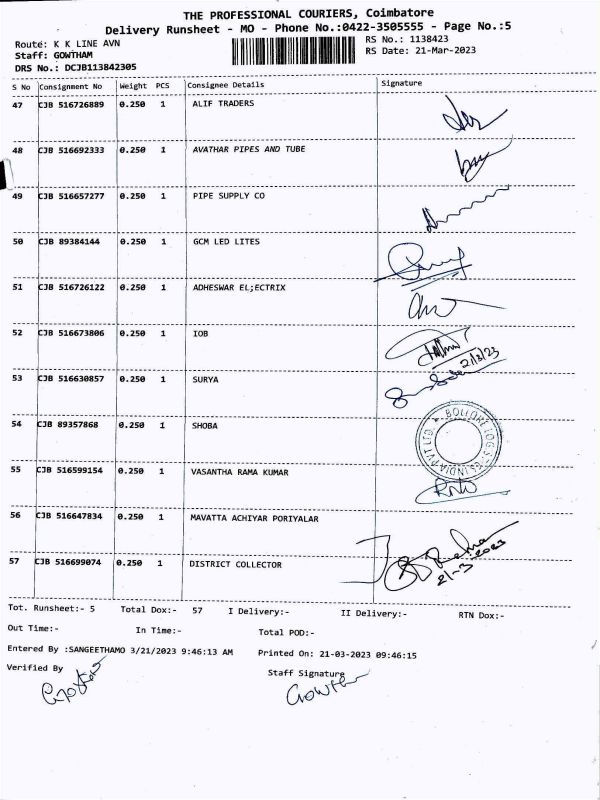 THE PROFESSIONAL COURIERS, Coimbatore
Delivery Runsheet - MO - Phone No.:0422-3505555 - Page No.:5
Route: K K LINE AVN
RS No.: 1138423
Staff: GOWTHAM
RS Date: 21-Mar-2023
DRS No.: DCJB113842305
S No Consignment No Weight PCS Consignee Details Signature
47 CJB 516726889 0.250 1 ALIF TRADERS
48 CJB 516692333 0.250 1 AVATHAR PIPES AND TUBE
49 CJB 516657277 0.250 1 PIPE SUPPLY CO
50 CJB 89384144 0.250 1 GCM LED LITES
51 CJB 516726122 0.250 1 ADHESWAR EL;ECTRIX
52 CJB 516673806 0.250 1 IOB
21/3/23
53 CJB 516630857 0.250 1 SURYA
54 CJB 89357868 0.250 1 SHOBA
55 CJB 516599154 0.250 1 VASANTHA RAMA KUMAR
56 CJB 516647834 0.250 1 MAVATTA ACHIYAR PORIYALAR
57 CJB 516699074 0.250 1 DISTRICT COLLECTOR
21-3-2023
Tot. Runsheet:- 5 Total Dox:- 57 I Delivery:- II Delivery:- RTN Dox:-
Out Time:- In Time:- Total POD:-
Entered By :SANGEETHAMO 3/21/2023 9:46:13 AM Printed On: 21-03-2023 09:46:15
Verified By Staff Signature
Gowtham